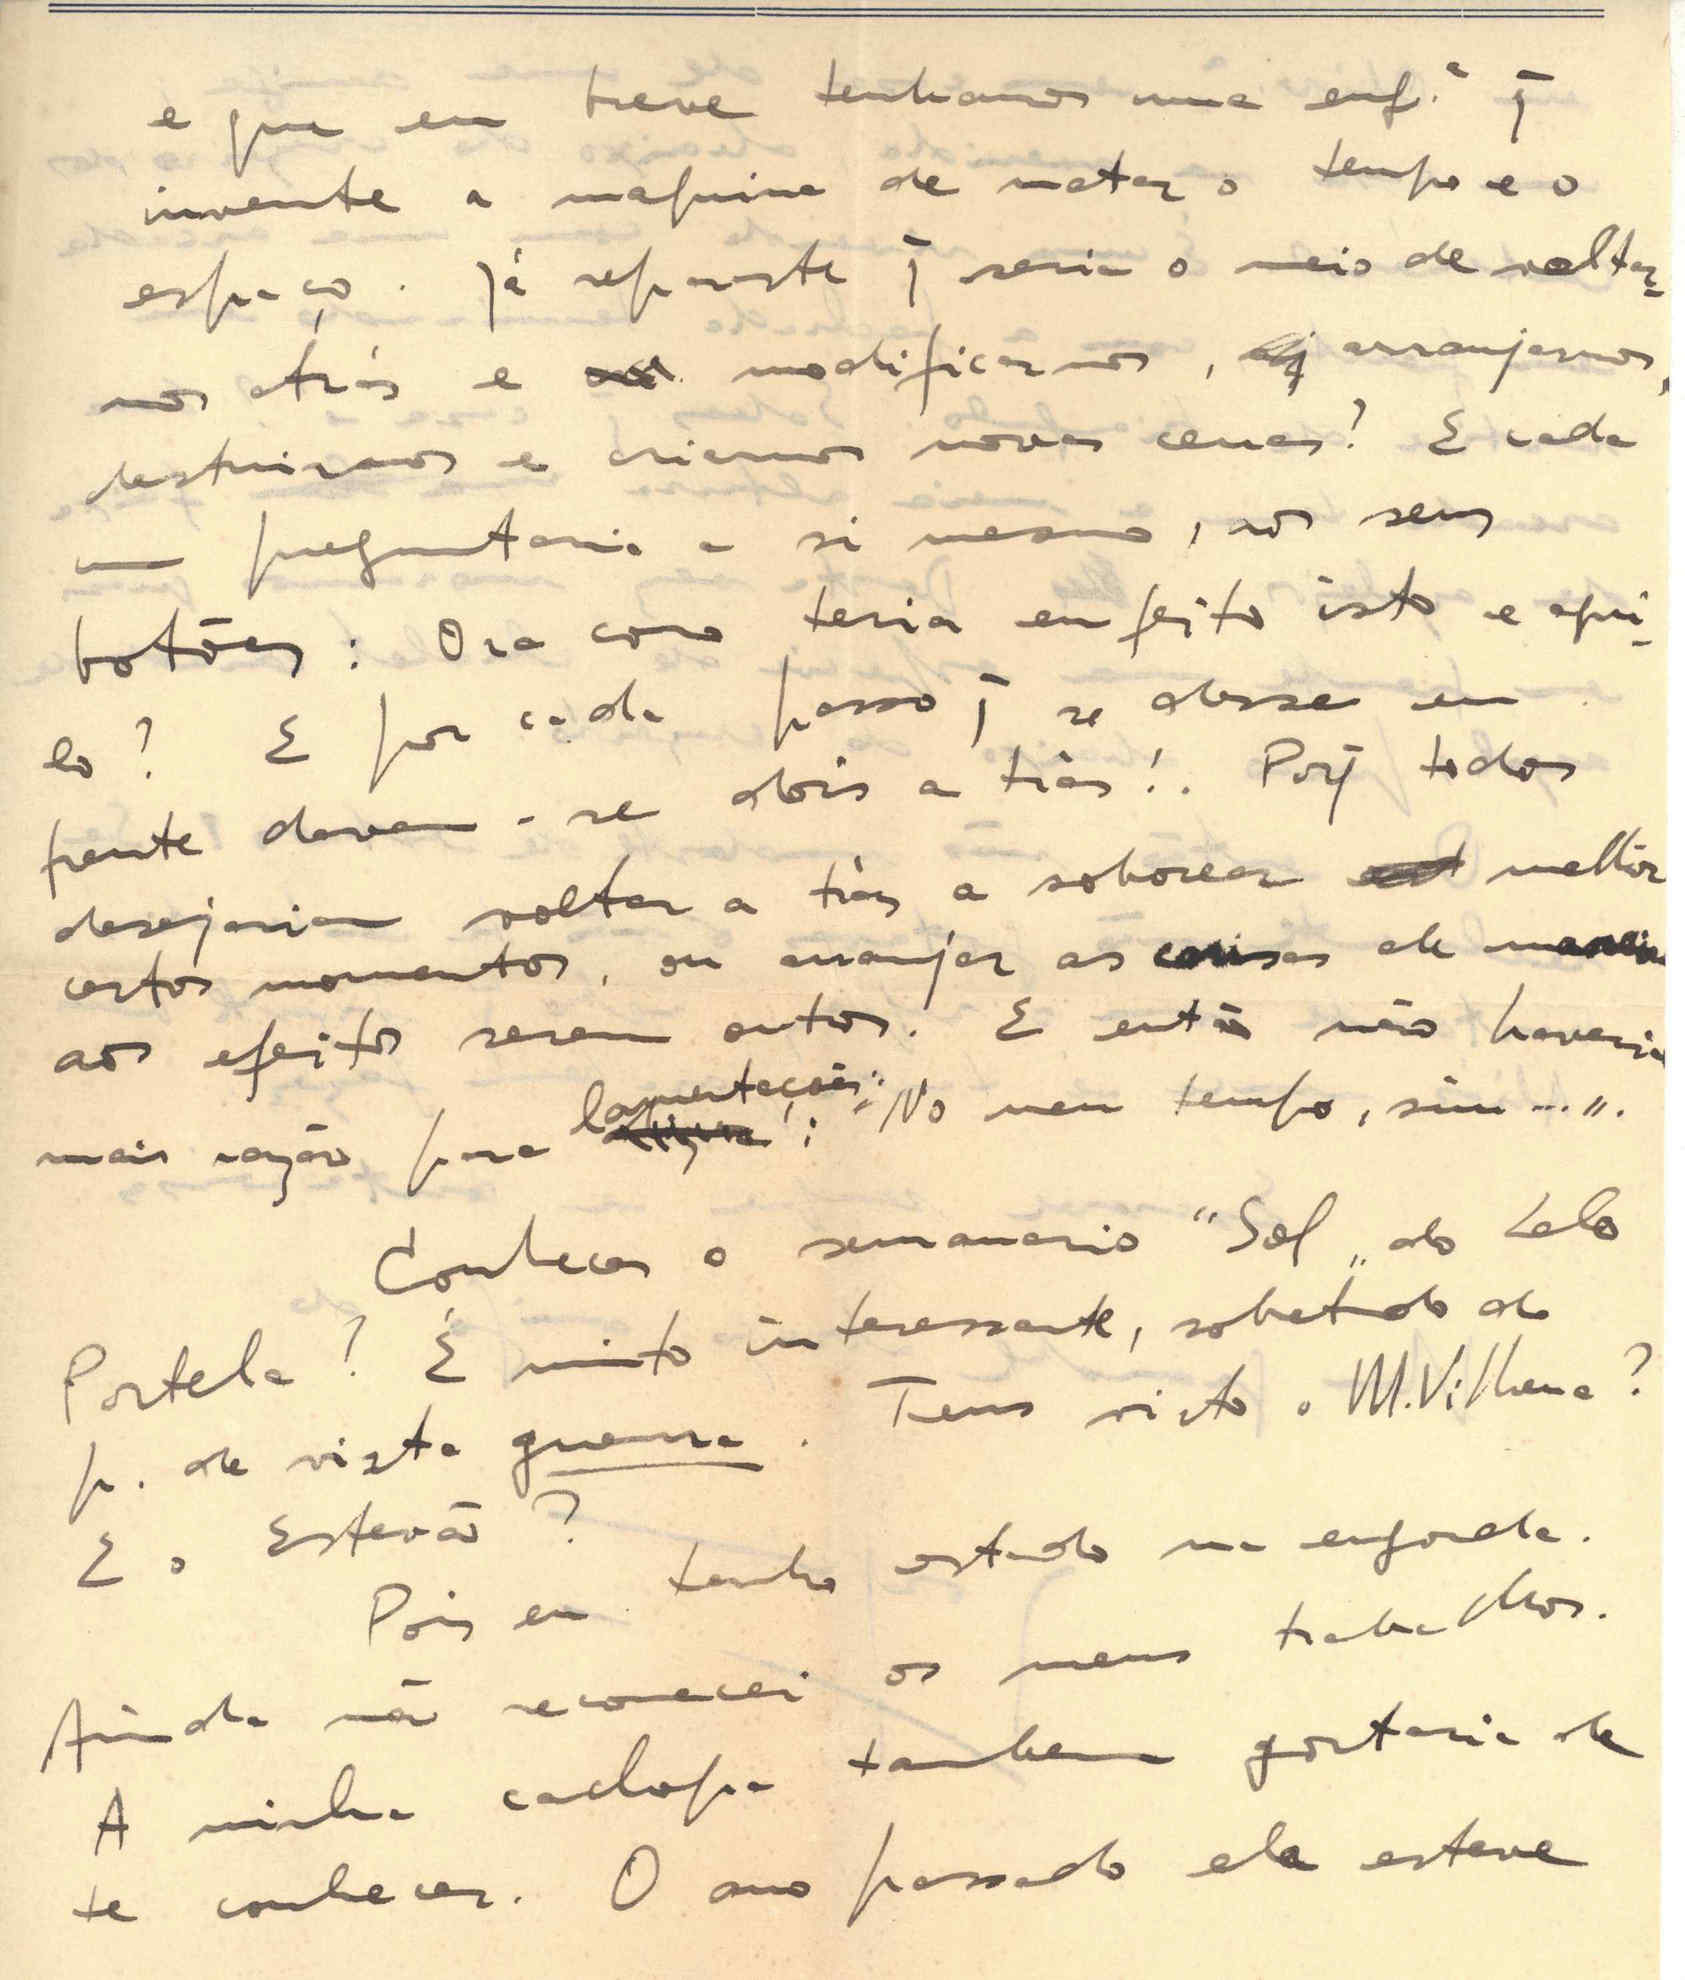 e que em breve tenhamos uma eng.ª q̄
invente a maquina de matar o tempo e o
espaço. Já reparaste q̄ seria o meio de voltar-
nos atrás e modificarmos, arranjarmos,
destruirmos e criarmos novas cenas? E cada
um preguntaria a si mesmo, aos seus
botões: Ora como teria eu feito isto e aqui-
lo? E por cada passo q̄ se desse em
frente davam-se dois a trás!. Porq̄ todos
desejariam voltar a trás a saborear melhor
certos momentos, ou arranjar as coisas de maneira
aos efeitos serem outros. E então não haveria
mais razão para lamentações: "No meu tempo, sim...".
Conheces o semanario "Sol" do Lelo
Portela? É muito interessante, sobretudo do
p. de vista guerra. Tens visto o M. Vilhena?
E o Estevão?
Pois eu tenho estado na engorda.
Ainda não recomecei os meus trabalhos.
A minha cachopa tambem gostaria de
te conhecer. O ano passado ela esteve